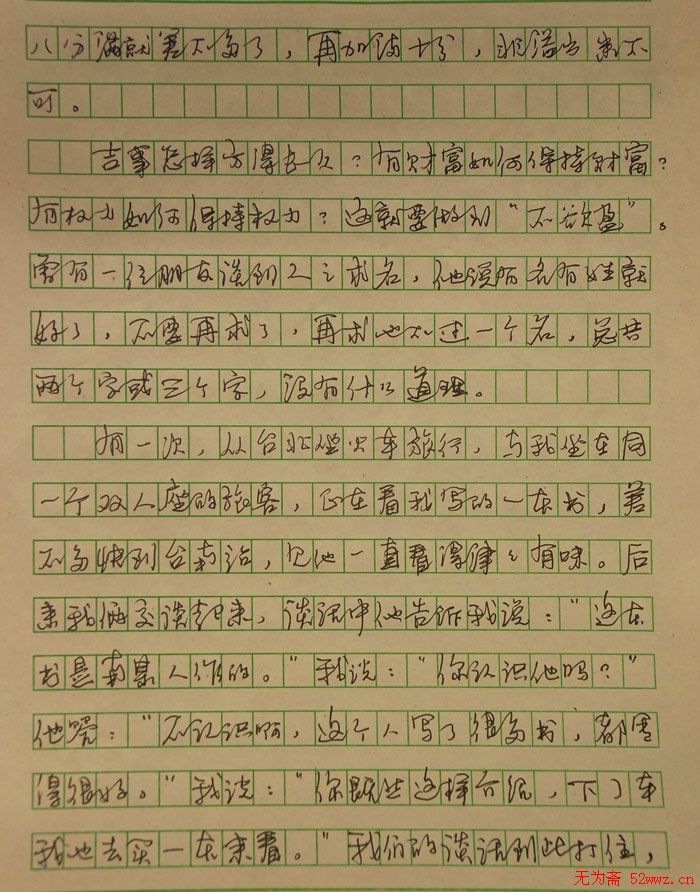 八分满就差不多了，再加满十分，非溢出来不
可。
吉事怎样方得长久？有财富如何保持财富？
有权力如何保持权力？这就要做到“不欲盈”。
曾有一位朋友谈到人之求名，他说有名有姓就
好了，不要再求了，再求也不过一个名，总共
两个字或三个字，没有什么道理。
有一次，从台北坐火车旅行，与我坐在同
一个双人座的旅客，正在看我写的一本书，差
不多快到台南站，见他一直看得津々有味。后
来我俩交谈起来，谈话中他告诉我说：“这本
书是南某人作的。”我说：“你认识他吗？”
他答：“不认识啊，这个人写了很多书，都写
得很好。”我说：“你既然这样介绍，下了车
我也去买一本来看。”我们的谈话到此打住，
无为斋 52wwz.cn